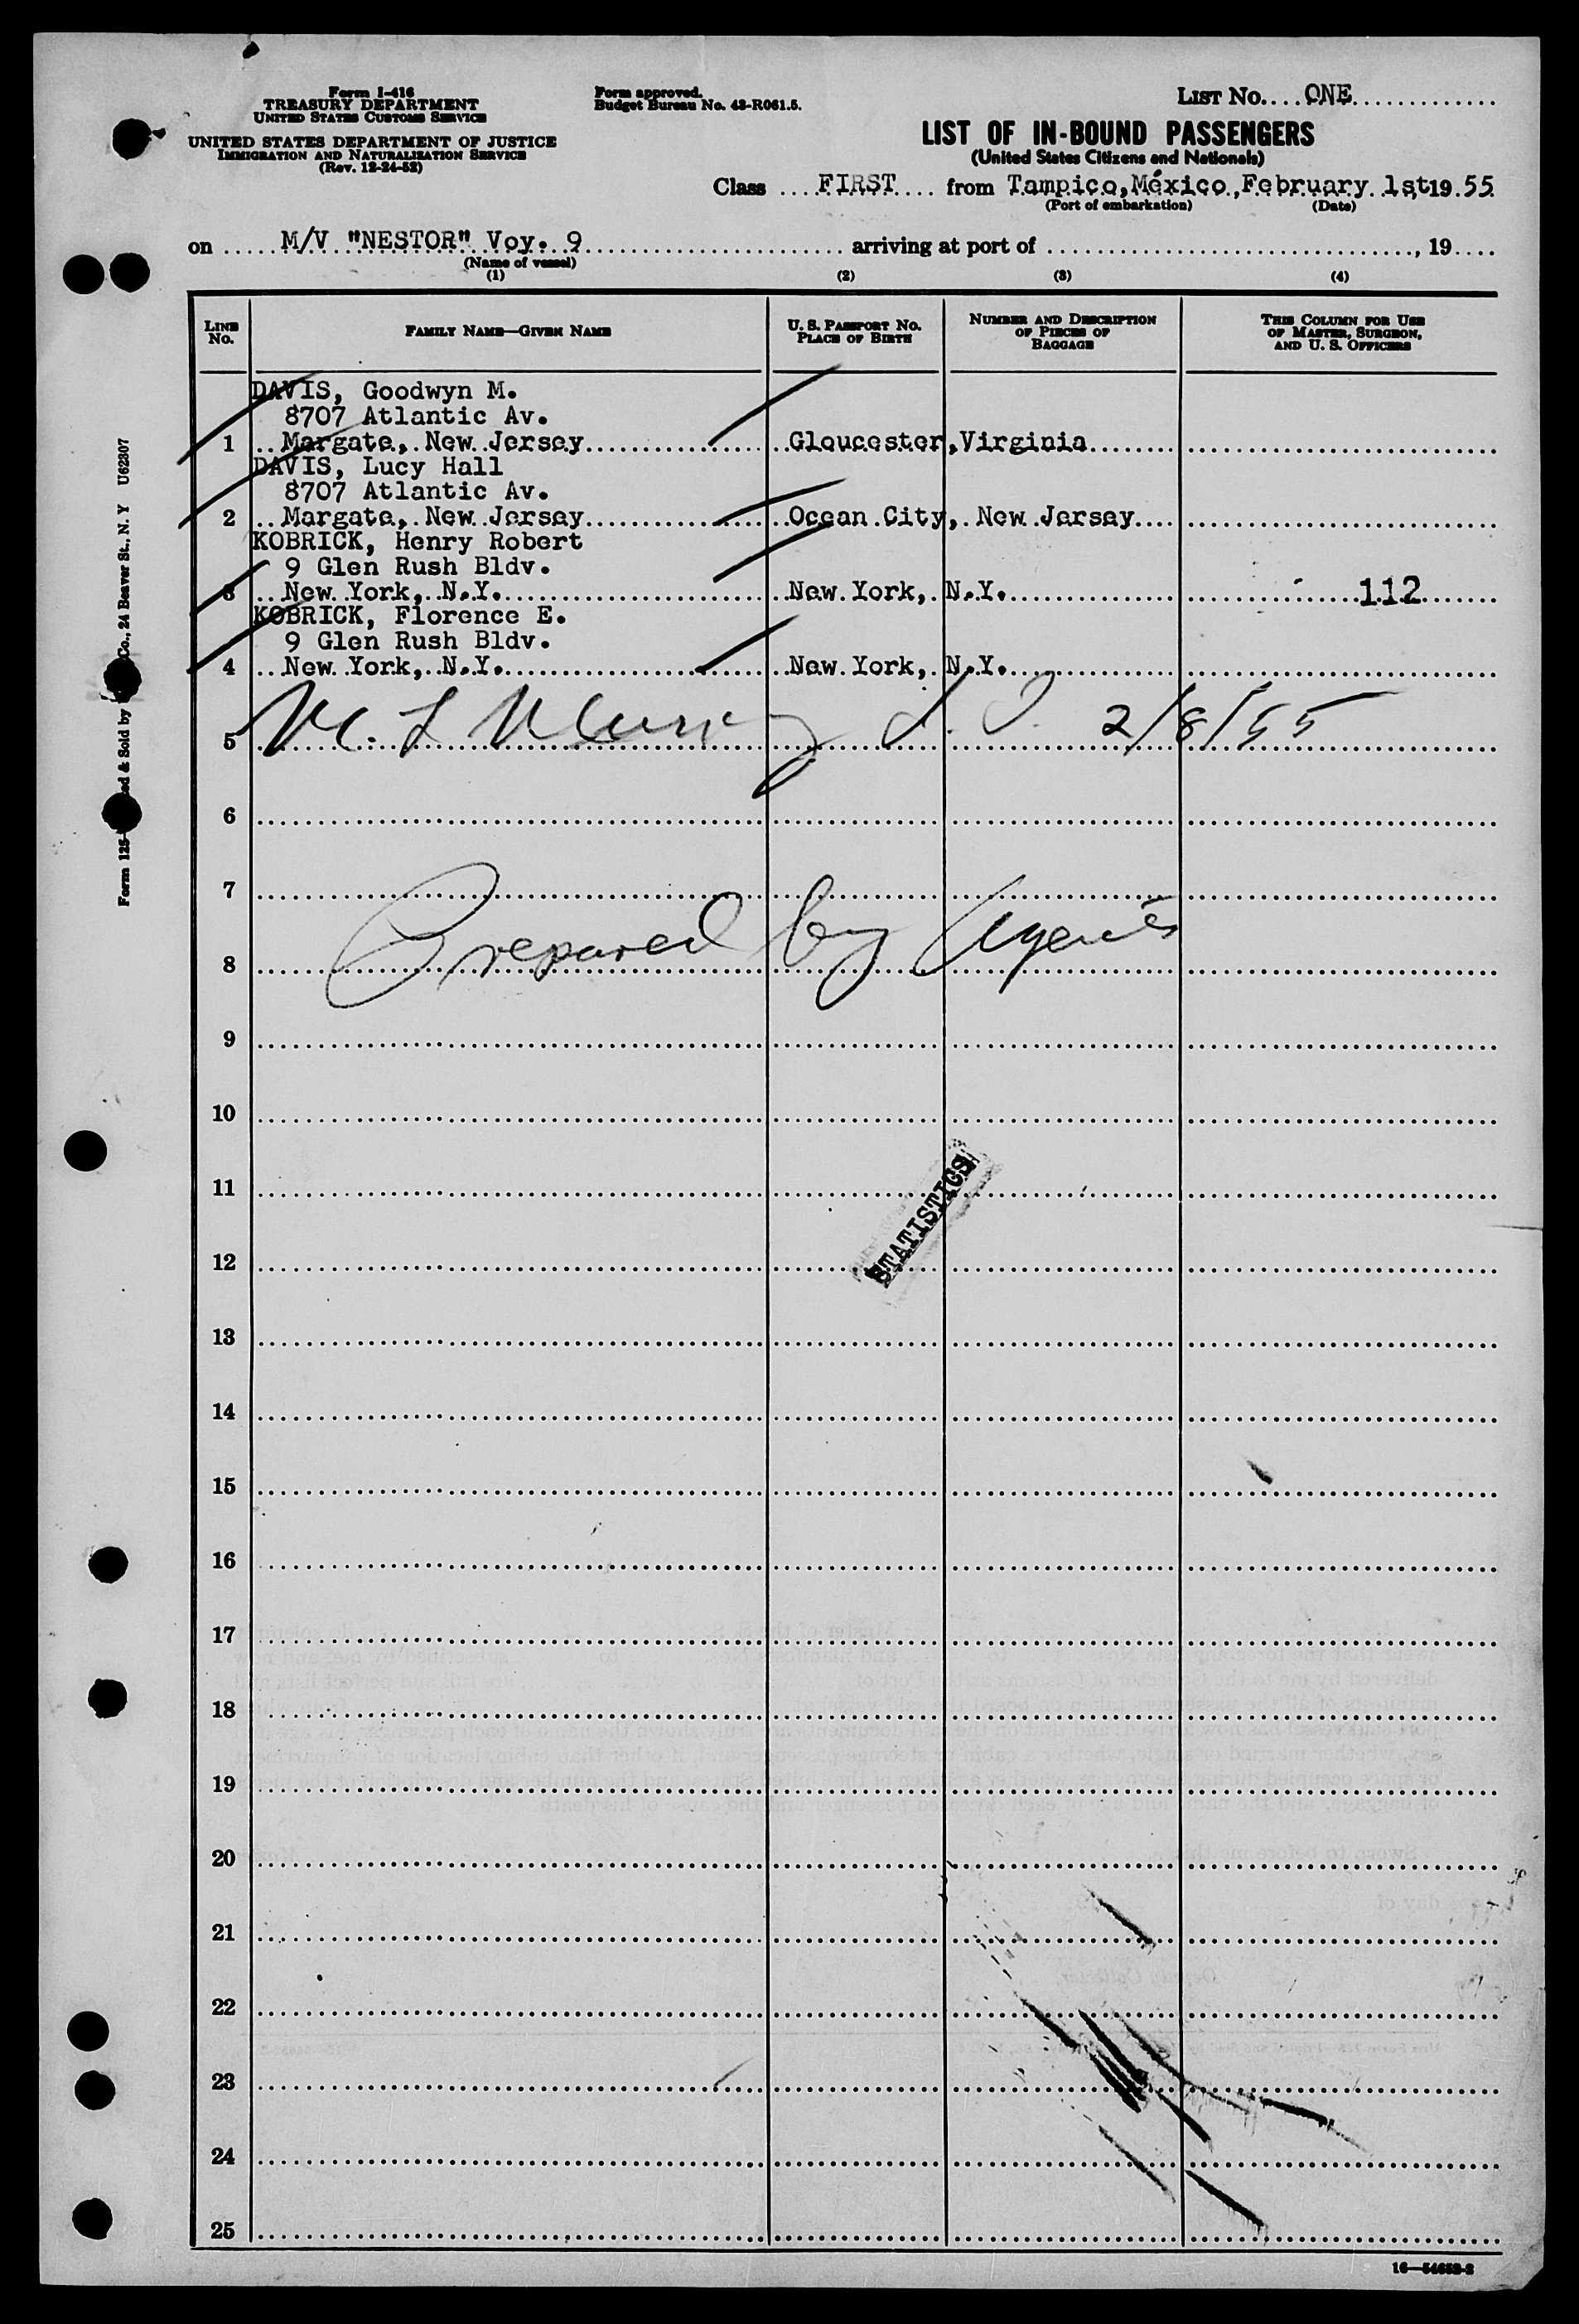 Form I-416
TREASURY DEPARTMENT
UNITED STATES CUSTOMS SERVICE
UNITED STATES DEPARTMENT OF JUSTICE
IMMIGRATION AND NATURALIZATION SERVICE
(Rev. 12-24-52)
Form approved.
Budget Bureau No. 43-R061.5.
LIST No. ONE
LIST OF IN-BOUND PASSENGERS
(United States Citizens and Nationals)
Class FIRST from Tampico, México, February 1st 19 55
(Port of embarkation) (Date)
on M/V "NESTOR" Voy. 9 arriving at port of , 19
(Name of vessel)
(1) (2) (3) (4)
LINE No. FAMILY NAME—GIVEN NAME U. S. PASSPORT No. PLACE OF BIRTH NUMBER AND DESCRIPTION OF PIECES OF BAGGAGE THIS COLUMN FOR USE OF MASTER, SURGEON, AND U. S. OFFICERS
DAVIS, Goodwyn M.
8707 Atlantic Av.
1 Margate, New Jersey Gloucester, Virginia
DAVIS, Lucy Hall
8707 Atlantic Av.
2 Margate, New Jersey Ocean City, New Jersey
KOBRICK, Henry Robert
9 Glen Rush Bldv.
3 New York, N.Y. New York, N.Y. 112
KOBRICK, Florence E.
9 Glen Rush Bldv.
4 New York, N.Y. New York, N.Y.
5 2/8/55
6
7
8 Prepared by Agents
9
10
11
STATISTICS
12
13
14
15
16
17
18
19
20
21
22
23
24
25
Form 125- ed & Sold by Co., 24 Beaver St., N. Y U62307
16—54652-2